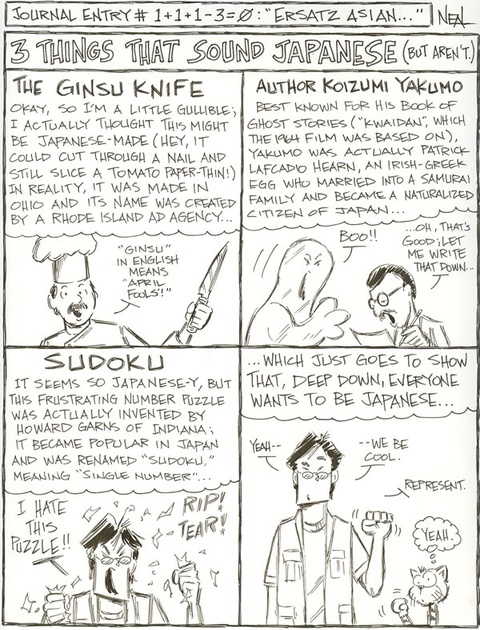 JOURNAL ENTRY # 1+1+1-3=Ø: "ERSATZ ASIAN..."
NEAL
3 THINGS THAT SOUND JAPANESE (BUT AREN'T.)
THE GINSU KNIFE
OKAY, SO I'M A LITTLE GULLIBLE;
I ACTUALLY THOUGHT THIS MIGHT
BE JAPANESE-MADE (HEY, IT
COULD CUT THROUGH A NAIL AND
STILL SLICE A TOMATO PAPER-THIN!)
IN REALITY, IT WAS MADE IN
OHIO AND ITS NAME WAS CREATED
BY A RHODE ISLAND AD AGENCY...
"GINSU"
IN ENGLISH
MEANS
"APRIL
FOOLS'!"
AUTHOR KOIZUMI YAKUMO
BEST KNOWN FOR HIS BOOK OF
GHOST STORIES ("KWAIDAN", WHICH
THE 1964 FILM WAS BASED ON),
YAKUMO WAS ACTUALLY PATRICK
LAFCADIO HEARN, AN IRISH-GREEK
EGG WHO MARRIED INTO A SAMURAI
FAMILY AND BECAME A NATURALIZED
CITIZEN OF JAPAN...
BOO!!
...OH, THAT'S
GOOD; LET
ME WRITE
THAT DOWN...
SUDOKU
IT SEEMS SO JAPANESE-Y, BUT
THIS FRUSTRATING NUMBER PUZZLE
WAS ACTUALLY INVENTED BY
HOWARD GARNS OF INDIANA;
IT BECAME POPULAR IN JAPAN
AND WAS RENAMED "SUDOKU,"
MEANING "SINGLE NUMBER"...
I HATE
THIS
PUZZLE!!
RIP!
TEAR!
...WHICH JUST GOES TO SHOW
THAT, DEEP DOWN, EVERYONE
WANTS TO BE JAPANESE...
YEAH--
--WE BE
COOL.
REPRESENT.
YEAH.